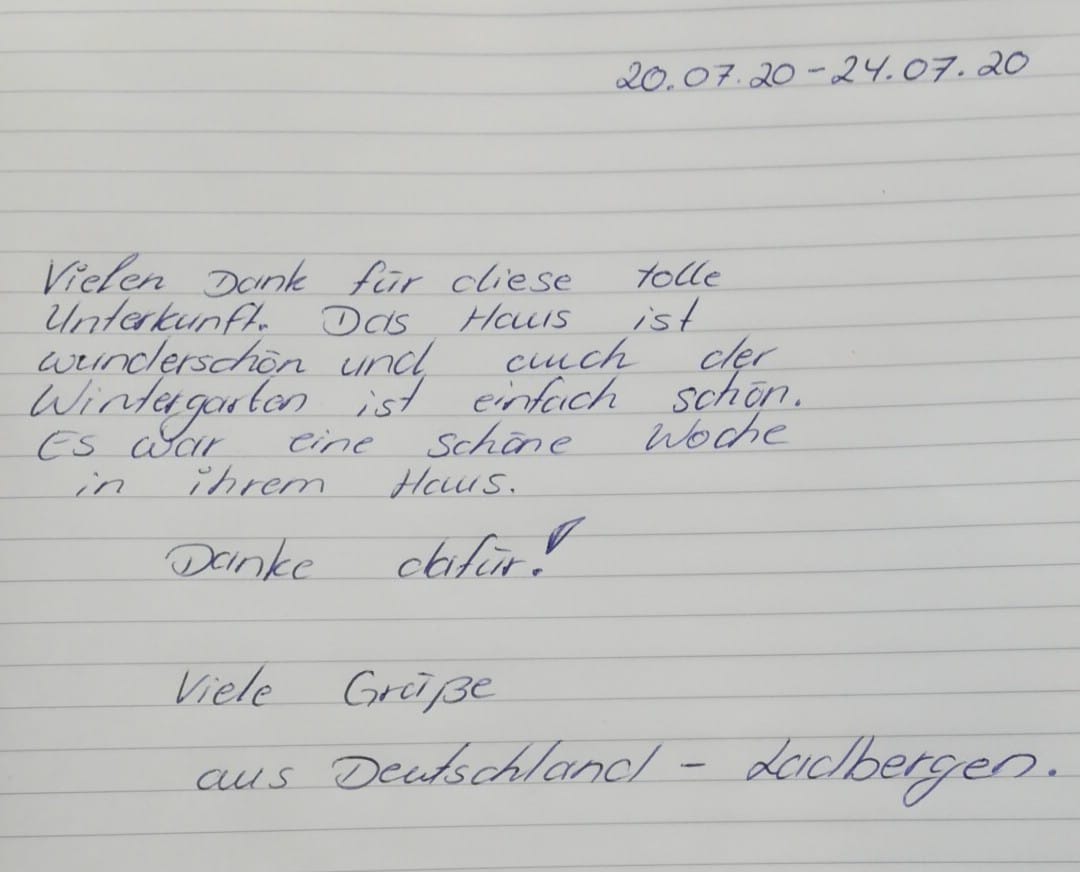 20.07.20 - 24.07.20
Vielen Dank für diese tolle
Unterkunft. Das Haus ist
wunderschön und auch der
Wintergarten ist einfach schön.
Es war eine schöne Woche
in ihrem Haus.
Danke dafür!
Viele Grüße
aus Deutschland - Ladbergen.